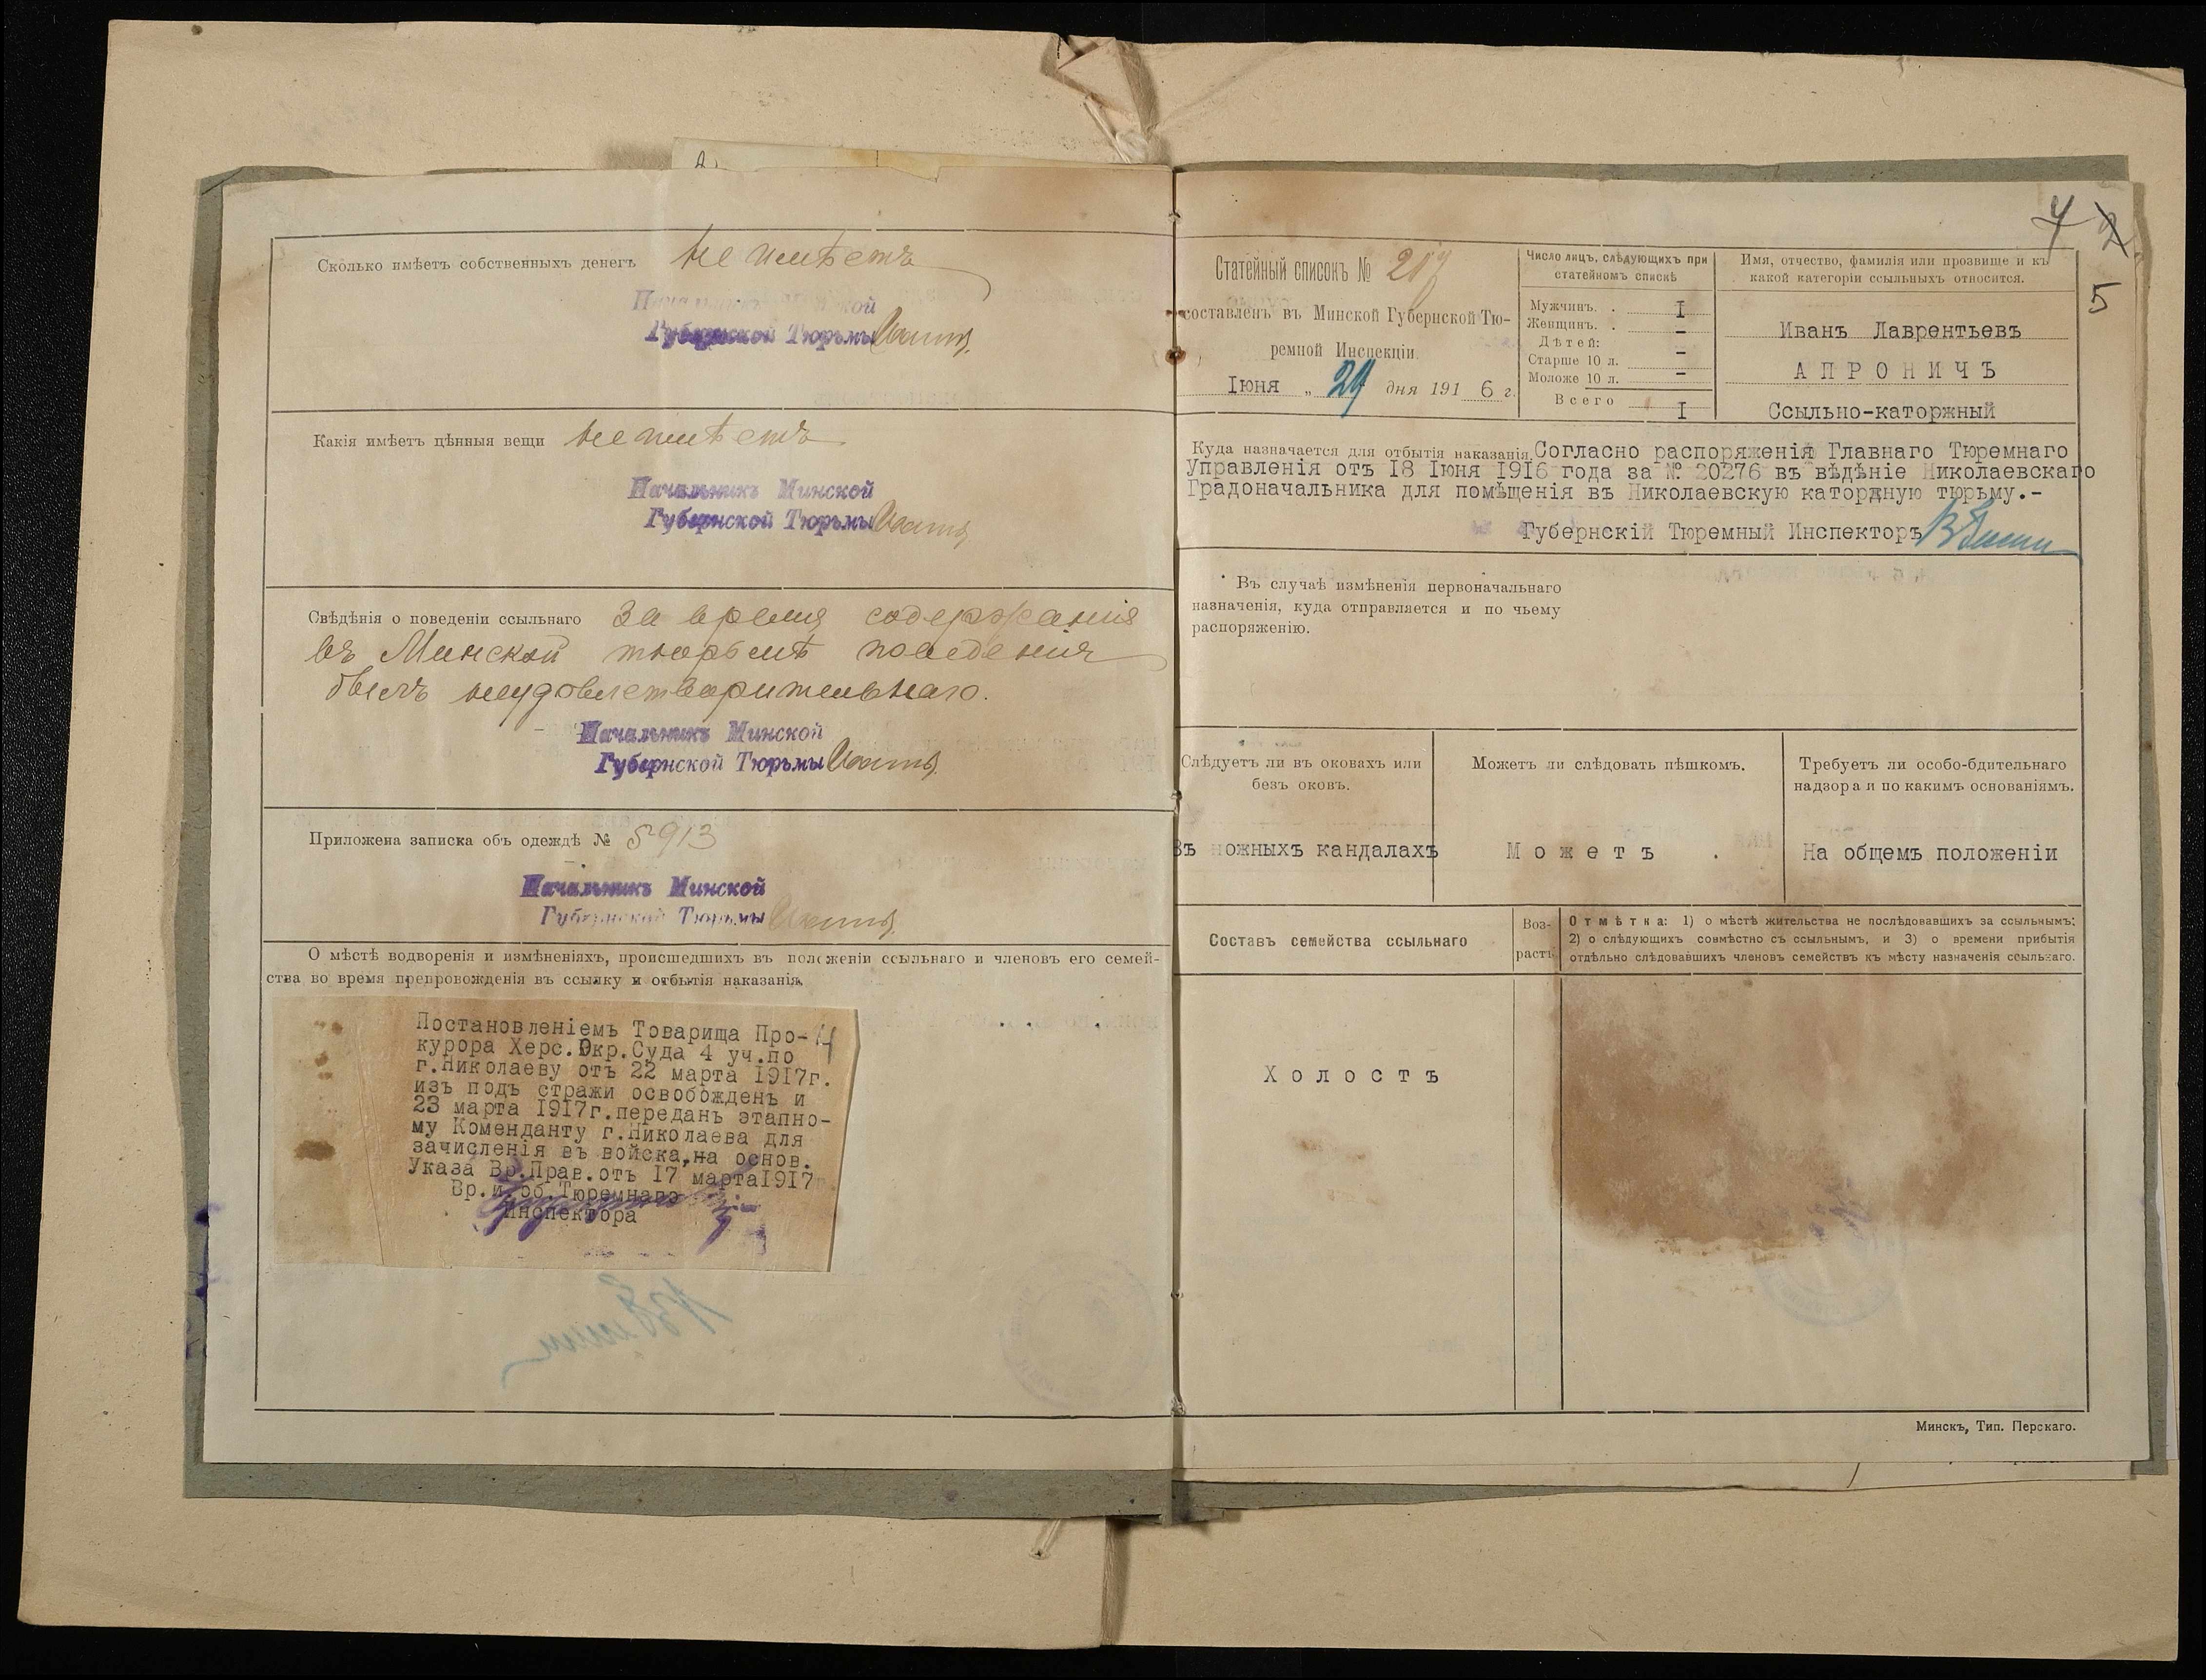 Сколько имѣетъ собственныхъ денегъ не имѣетъ
Губернской Тюрьмы
Какія имѣетъ цѣнныя вещи не имѣетъ
Начальникъ Минской
Губернской Тюрьмы
Свѣдѣнія о поведеніи ссыльнаго За время содержанія
въ Минской тюрьмѣ поведенія
былъ неудовлетворительнаго.
Начальникъ Минской
Губернской Тюрьмы
Приложена записка объ одеждѣ № 5913
Начальникъ Минской
Губернской Тюрьмы
О мѣстѣ водворенія и измѣненіяхъ, происшедшихъ въ положеніи ссыльнаго и членовъ его семей-
ства во время препровожденія въ ссылку и отбытія наказанія.
Постановленіемъ Товарища Про-
курора Херс.Окр.Суда 4 уч.по
г.Николаеву отъ 22 марта 1917г.
изъ подъ стражи освобожденъ и
23 марта 1917г.переданъ этапно-
му Коменданту г.Николаева для
зачисленія въ войска,на основ.
Указа Вр.Прав.отъ 17 марта1917
Вр.и об Тюремнаго
Инспектора
4 2
5
Статейный списокъ № 217
составленъ въ Минской Губернской Тю-
ремной Инспекціи
Іюня „ 24 дня 1916 г.
Число лицъ, слѣдующихъ при
статейномъ спискѣ
Мужчинъ. . I
Женщинъ. . –
Дѣтей:
Старше 10 л. –
Моложе 10 л. –
Всего I
Имя, отчество, фамилія или прозвище и къ
какой категоріи ссыльныхъ относится.
Иванъ Лаврентьевъ
АПРОНИЧЪ
Ссыльно-каторжный
Куда назначается для отбытія наказанія. Согласно распоряженія Главнаго Тюремнаго
Управленія отъ 18 Іюня 1916 года за № 20276 въ вѣдѣніе Николаевскаго
Градоначальника для помѣщенія въ Николаевскую каторжную тюрьму.-
Губернскій Тюремный Инспекторъ
Въ случаѣ измѣненія первоначальнаго
назначенія, куда отправляется и по чьему
распоряженію.
Слѣдуетъ ли въ оковахъ или
безъ оковъ.
Въ ножныхъ кандалахъ
Можетъ ли слѣдовать пѣшкомъ.
Можетъ .
Требуетъ ли особо-бдительнаго
надзора и по какимъ основаніямъ.
На общемъ положеніи
Составъ семейства ссыльнаго
Воз-
растъ
Отмѣтка: 1) о мѣстѣ жительства не послѣдовавшихъ за ссыльнымъ;
2) о слѣдующихъ совмѣстно съ ссыльнымъ, и 3) о времени прибытія
отдѣльно слѣдовавшихъ членовъ семействъ къ мѣсту назначенія ссыльнаго.
Холостъ
Минскъ, Тип. Перскаго.